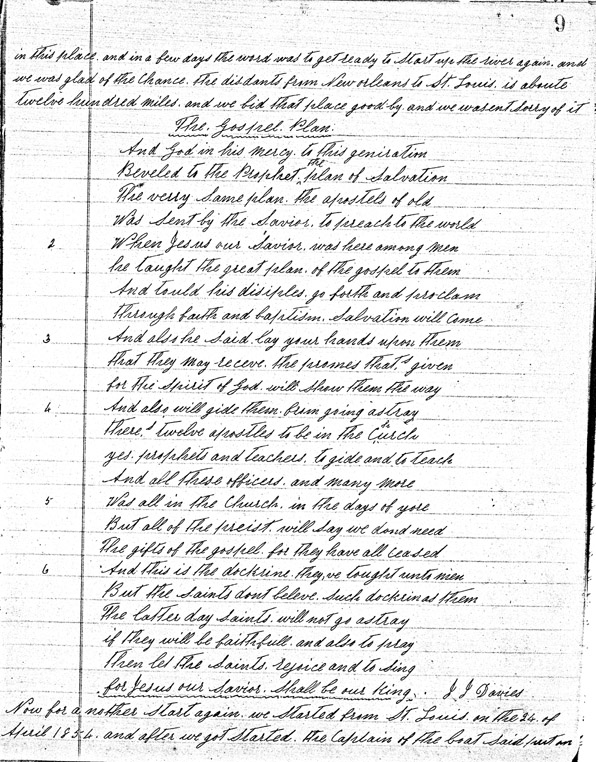 9
in this place. and in a few days the word was to get ready to start up the river again. and
we was glad of the chance. the disdants from New orleans to St. Louis. is aboute
twelve hundred miles. and we bid that place good by. and we wasent sorry of it
The. Gospel. Plan.
And God in his mercy. to this geniration
Reveled to the Prophet, the plan of Salvation
The verry same plan. the apostels of old
Was sent by the Savior. to preach to the world
2 When Jesus our Savior. was here among men
he taught the great plan. of the gospel to them
And tould his disiples. go forth and proclam
through faith and baptism. Salvation will come
3 And also he said. lay your hands upon them
that they may receve. the promes that,s given
for the Spirit of God. will show them the way
4 And also will gide them. from going astray
there,s twelve apostles to be in the Church
yes. prophets and teachers. to gide and to teach
And all these officers. and many more
5 Was all in the Church. in the days of yore
But all of the preist. will say we dond need
The gifts of the gospel. for they have all ceased
6 And this is the docktrine. they,ve tought unto men
But the saints dont beleve. such doctrin as them
The latter day saints. will not go astray
if they will be faithfull. and also to pray
then let the saints. rejoice and to sing
for Jesus our Savior. Shall be our King. . J J Davies
Now for a nother start again. we started from St. Louis. on the 24. of
April 1854. and after we got started. the Captain of the boat said put on